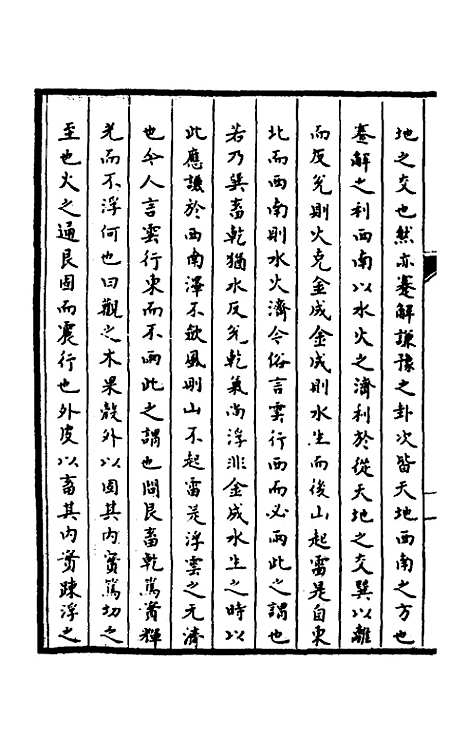 地之交也然亦蹇解謙豫之卦次皆天地西南之方也
蹇解之利西南以水火之濟利於從天地之交巽以離
而反兊則火克金成金成則水生而後山起雷是自東
北而西南則水火濟今俗言雲行西而必雨此之謂也
若乃巽畜乾猶水反兊乾氣尚浮非金成水生之時以
此應謙於西南澤不歛風則山不起雷是浮雲之无濟
也今人言雲行東而不雨此之謂也問艮畜乾篤實輝
光而不浮何也曰觀之木果殼外以固其內實篤切之
至也火之通艮固而震行也外皮以畜其內實踈浮之